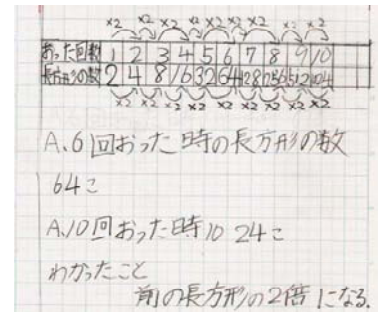 ×2 ×2 ×2 ×2 ×2 ×2 ×2 ×2 ×2
おった回数 1 2 3 4 5 6 7 8 9 10
長方形の数 2 4 8 16 32 64 128 256 512 1024
×2 ×2 ×2 ×2 ×2 ×2 ×2 ×2 ×2
A、6回おった時の長方形の数
64こ
A、10回おった時1024こ
わかったこと
前の長方形の2倍になる。